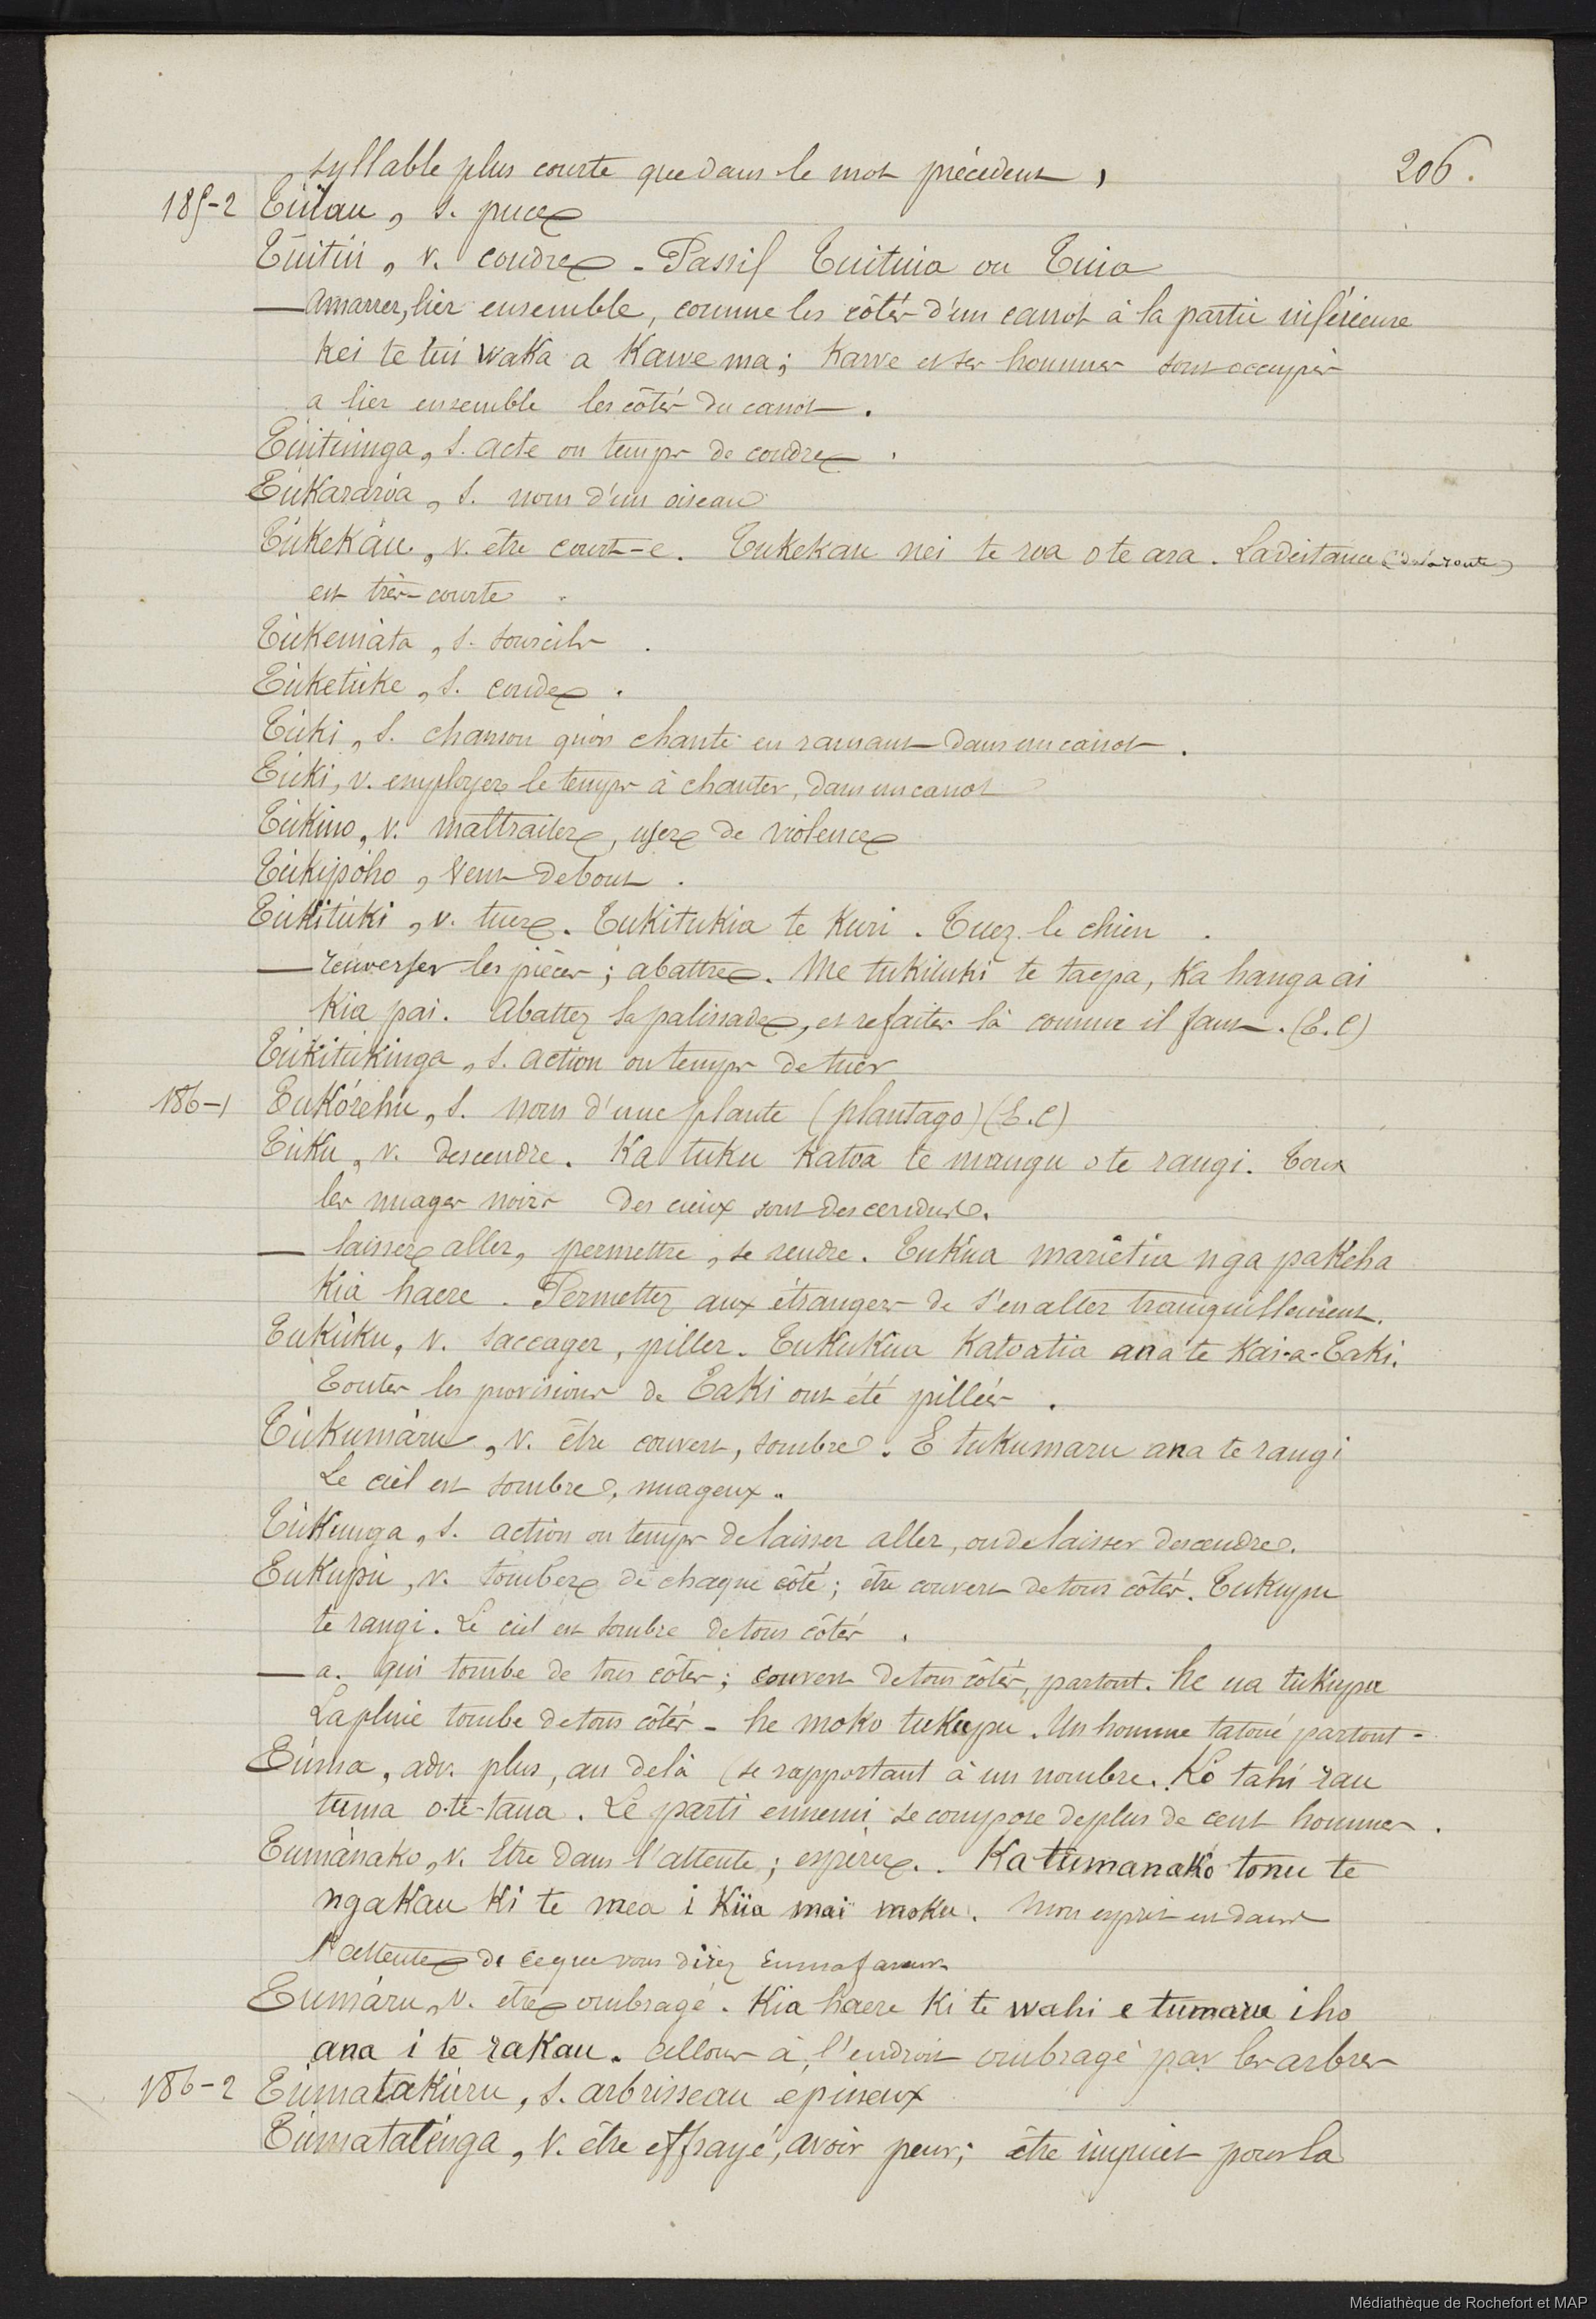 206.
syllable plus courte que dans le mot précédent,
185-2 Tuïau, s. puce
Tùitùi, v. coudre - Passif Tuituia ou Tuia
— Amarrer, lier ensemble, comme les côtés d'un canot à la partie inférieure
Kei te tui waka a Kawe ma; Kawe et ses hommes sont occupés
a lier ensemble les côtés du canot.
Tùitùinga, s. acte ou temps de coudre.
Tùkararóa, s. nom d'un oiseau
Tùkekàu, v. être court-e. Tukekau nei te roa o te ara. La distance (de la route)
est très-courte.
Tùkemàta, s. sourcils.
Tùketùke, s. coude.
Tùki, s. chanson qu'on chante en ramant dans un canot.
Tùki, v. employer le temps à chanter, dans un canot
Tùkino, v. maltraiter, user de violence
Tùkipóho, vent debout.
Tùkitùki, v. tuer. Tukitukia te Kuri. Tuez le chien.
— renverser les pièces; abattre. Me tukituki te taepa, Ka hanga ai
Kia pai. Abattez la palissade, et refaites là comme il faut. (E.C)
Tùkitùkinga, s. action ou temps de tuer
186-1 Tukórehu, s. nom d'une plante (plantago) (E.C)
Tùku, v. descendre. Ka tuku Katoa te mangu o te rangi. Tous
les nuages noirs des cieux sont descendus.
— laisser aller, permettre, se rendre. Tukua marietia nga pakeha
Kia haere. Permettez aux étrangers de s'en aller tranquillement.
Tukùku, v. saccager, piller. Tukukua Katoatia ana te Kai-a-Taki.
Toutes les provisions de Taki ont été pillées.
Tùkumàru, v. être couvert, sombre. E tukumaru ana te rangi
Le ciel est sombre, nuageux.
Tùkunga, s. action ou temps de laisser aller, ou de laisser descendre.
Tukupù, v. tomber de chaque côté; être couvert de tous côtés. Tukupu
te rangi. Le ciel est sombre de tous côtés.
— a. qui tombe de tous côtés; couvert de tous côtés, partout. he ua tukupu
La pluie tombe de tous côtés - he moko tukupu. Un homme tatoué partout -
Tùma, adv. plus, au delà (se rapportant à un nombre. Ko tahi rau
tuma o-te-taua. Le parti ennemi se compose de plus de cent hommes.
Tumànako, v. Etre dans l'attente; espérer. Ka tumanako tonu te
ngakau Ki te mea i Kiia mai moku. Mon esprit est dans
l'attente de ce que vous direz en ma faveur
Tumàru, v. être ombragé. Kia haere Ki te wahi e tumaru iho
ana i te rakau. allons à l'endroit ombragé par les arbres
186-2 Tùmatakùru, s. arbrisseau épineux
Tùmatatènga, v. être effrayé, avoir peur; être inquiet pour la
Médiathèque de Rochefort et MAP